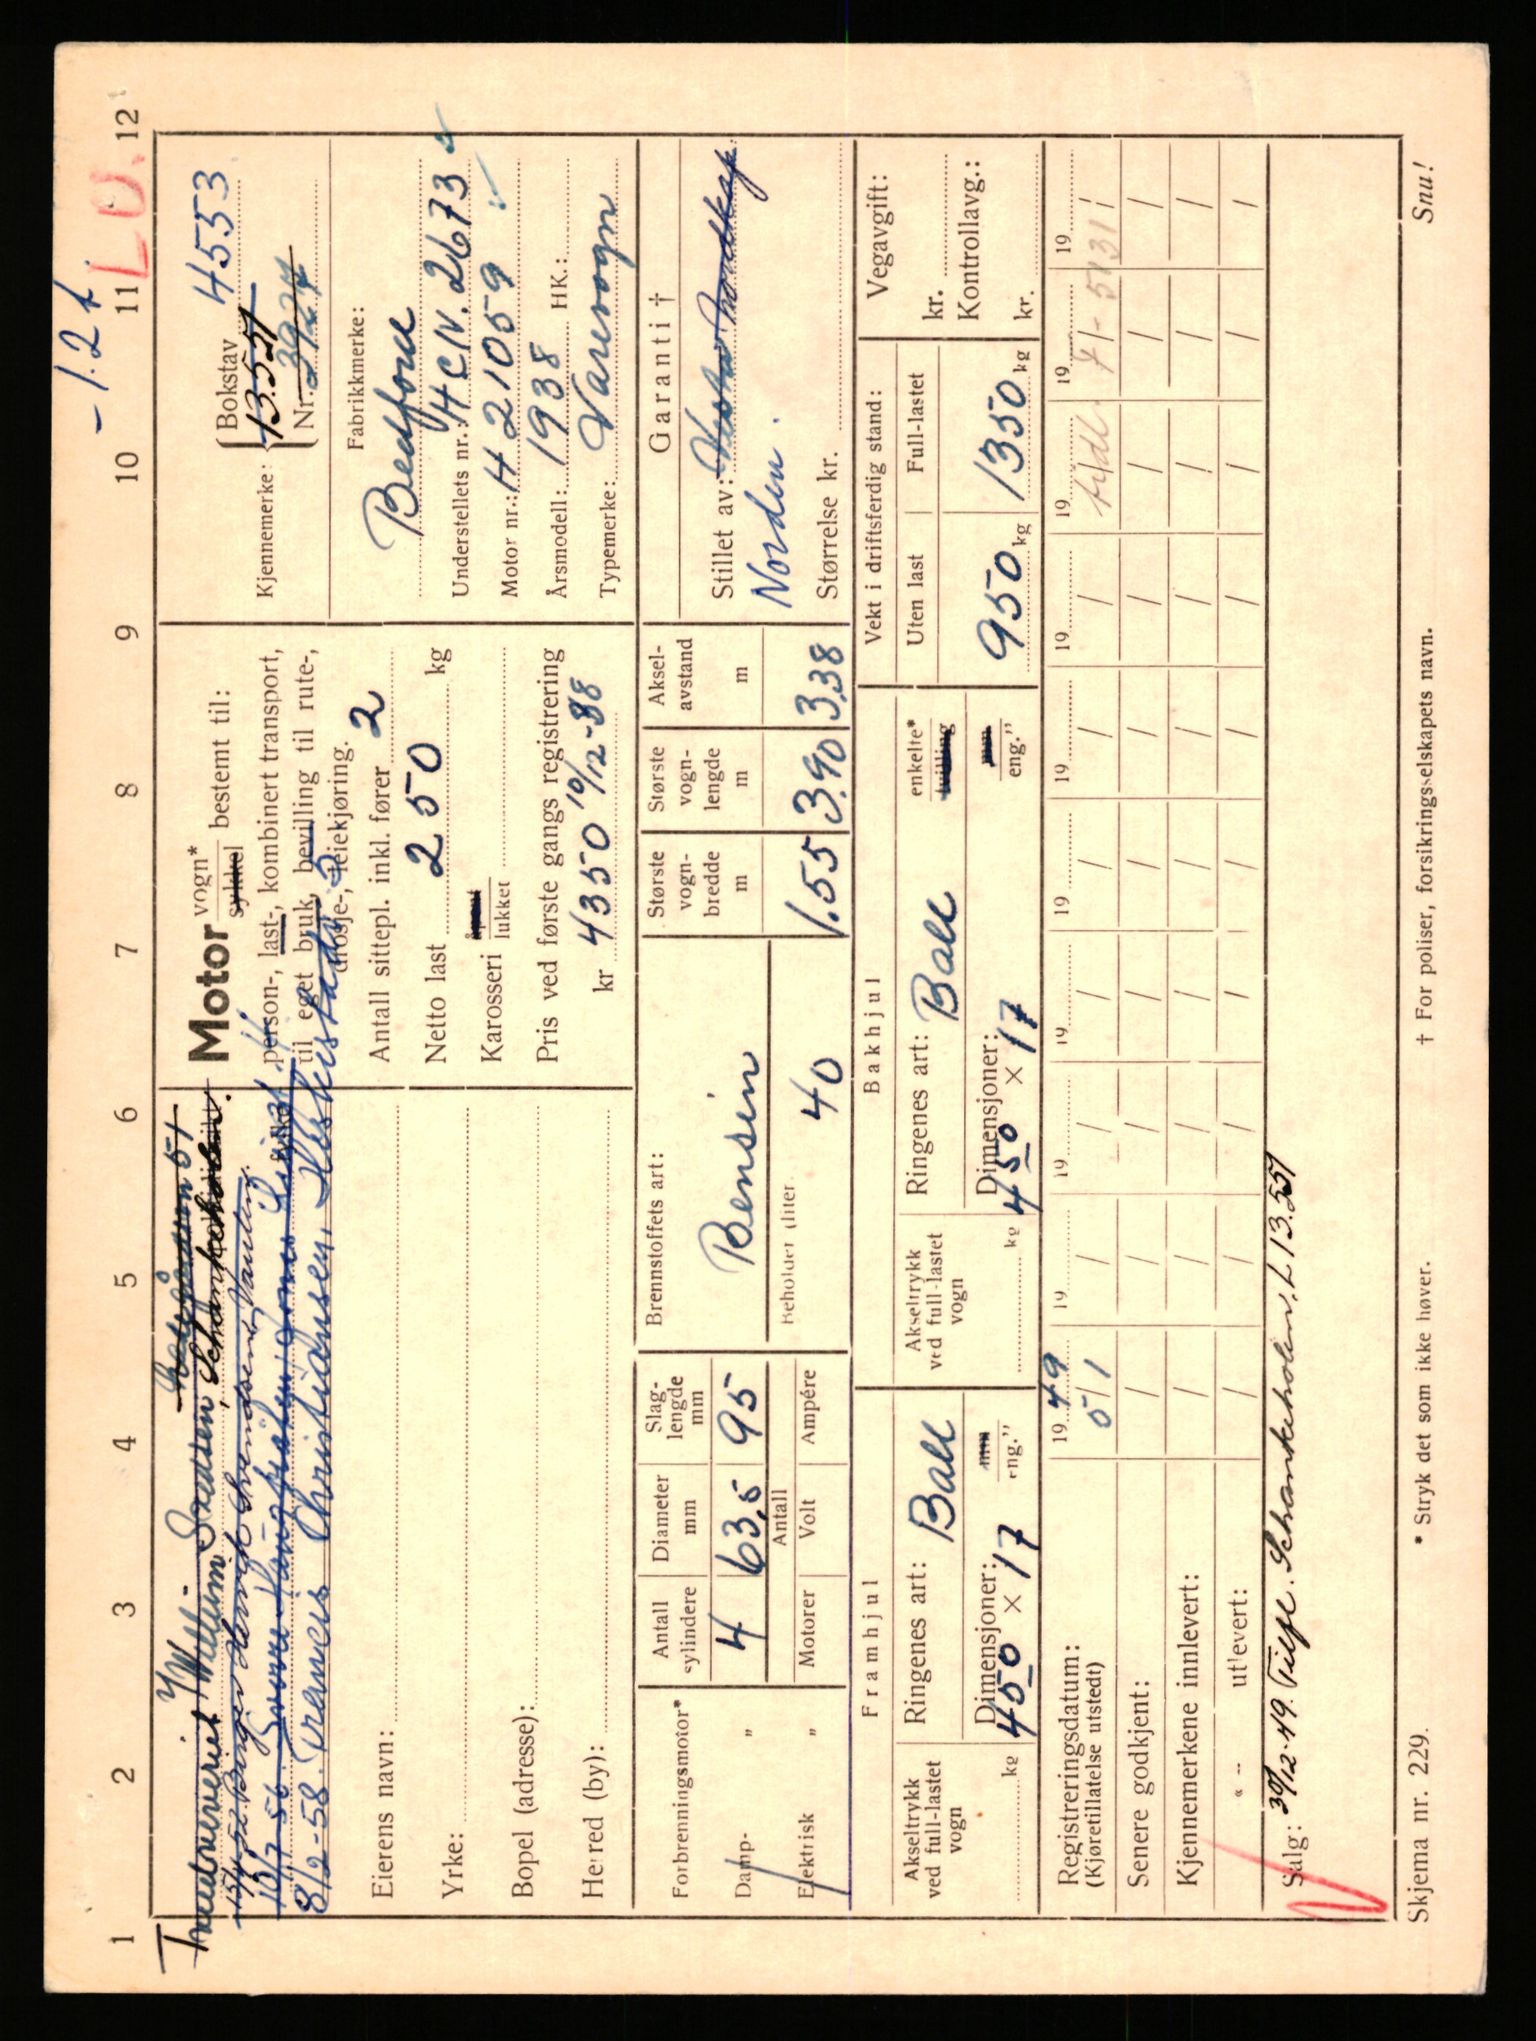 - 1.2 t
1 2 3 4 5 6 7 8 9 10 11 12
LU.
Trædreveriet
Schankeholen
15/4-52 Birger Henrik Svendsen, Vaulen
10/7-56
8/2-58. Francis Christiansen, Heskestads
Eierens navn:
Yrke:
Bopel (adresse):
Herred (by):
Motor vogn* sykkel bestemt til:
person-, last-, kombinert transport,
til eget bruk, bevilling til rute-,
drosje-, leiekjøring.
Antall sittepl. inkl. fører 2
Netto last 250 kg
Karosseri åpent lukket
Pris ved første gangs registrering
kr 4350 10/12-38
Kjennemerke: Bokstav 4553
13551
Nr. 3924
Fabrikkmerke:
Bedford
Understellets nr.: HCIV. 2673
Motor nr.: H 21059
Årsmodell: 1938 HK.:
Typemerke: Varevogn
Forbrenningsmotor*
Damp- „
Elektrisk „
Antall sylindere 4
Diameter mm 63,5
Slaglengde mm 95
Antall
Motorer Volt Ampére
Brennstoffets art:
Bensin
Beholder (liter 40
Største vognbredde m 1.55
Største vognlengde m 3.90
Akselavstand m 3.38
Garanti †
Stillet av: Nordkap
Norden.
Størrelse kr.
Framhjul
Akseltrykk ved full-lastet vogn kg
Ringenes art: Ball
Dimensjoner: mm eng.”
450 × 17
Bakhjul
Akseltrykk ved full-lastet vogn kg
Ringenes art: Ball
enkelte* tvilling
Dimensjoner: mm eng.”
450 × 17
Vekt i driftsferdig stand:
Uten last Full-lastet
950 kg 1350 kg
Vegavgift:
kr.
Kontrollavg.:
kr.
Registreringsdatum: 19 49 19 19 19 19 19 19 19 19 19
(Kjøretillatelse utstedt) 5/1 tidl. 7/- 5131
Senere godkjent:
Kjennemerkene innlevert:
« -- utlevert:
Salg: 30/12-49. Schankeholen, L 13.551
Skjema nr. 229. * Stryk det som ikke høver. † For poliser, forsikringsselskapets navn. Snu!